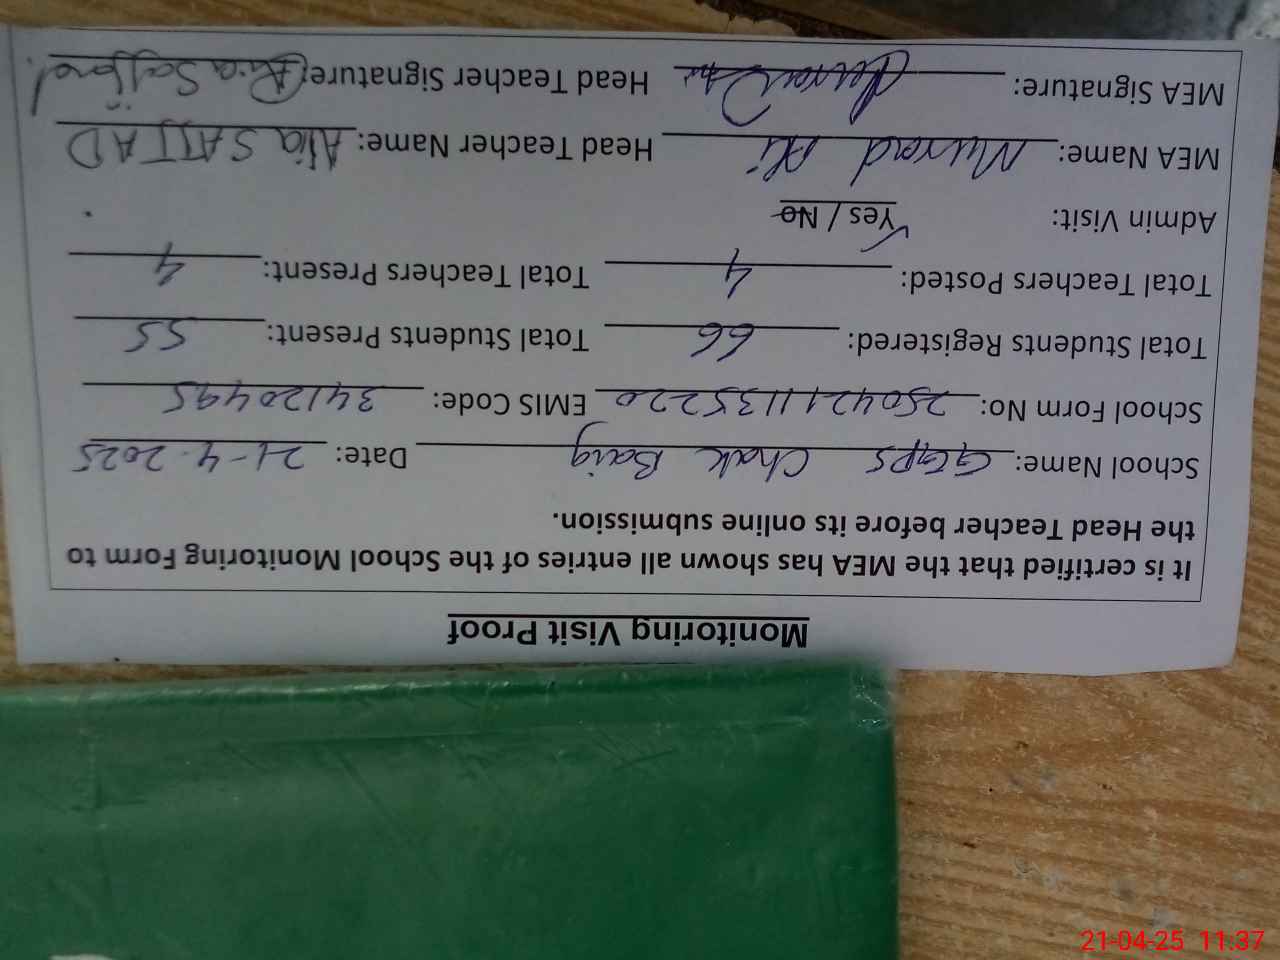 Monitoring Visit Proof
It is certified that the MEA has shown all entries of the School Monitoring Form to
the Head Teacher before its online submission.
School Name: GGPS Chak Baig Date: 21-4-2025
School Form No: 2504211135220 EMIS Code: 34120495
Total Students Registered: 66 Total Students Present: 55
Total Teachers Posted: 4 Total Teachers Present: 4
Admin Visit: Yes / No
MEA Name: Murad Ali Head Teacher Name: SATTAD
MEA Signature: Head Teacher Signature:
21-04-25 11:37